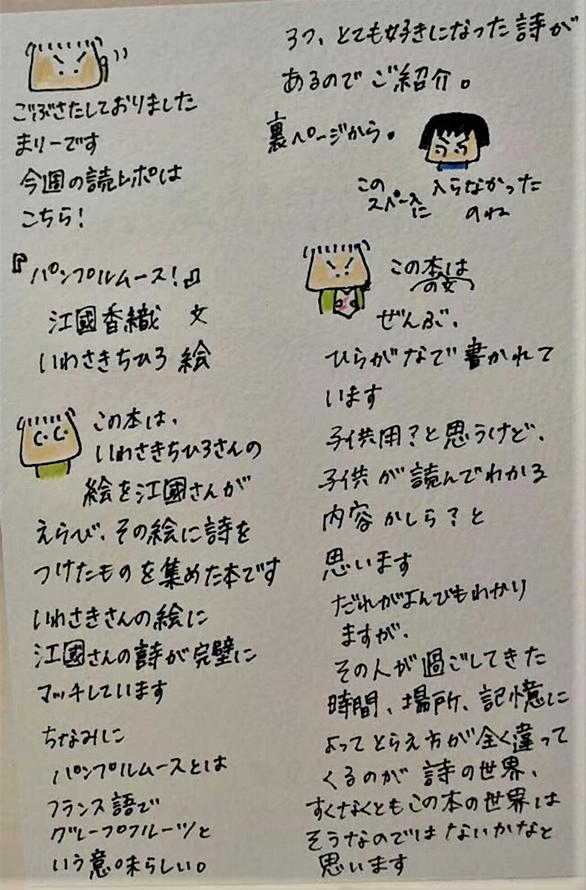 ごぶさたしておりました
まりーです
今週の読レポは
こちら!
『パンプルムース!』
江國香織 文
いわさきちひろ 絵
この本は、
いわさきちひろさんの
絵を江國さんが
えらび、その絵に詩を
つけたものを集めた本です
いわさきさんの絵に
江國さんの詩が完璧に
マッチしています
ちなみに
パンプルムースとは
フランス語で
グレープフルーツと
いう意味らしい。
3つ、とても好きになった詩が
あるのでご紹介。
裏ページから。
この
スペースに
入らなかった
のね
この本は
の文
ぜんぶ、
ひらがなで書かれて
います
子供用?と思うけど、
子供が読んでわかる
内容かしら?と
思います
だれがよんでもわかり
ますが、
その人が過ごしてきた
時間、場所、記憶に
よってとらえ方が全く違って
くるのが詩の世界、
すくなくともこの本の世界は
そうなのではないかなと
思います